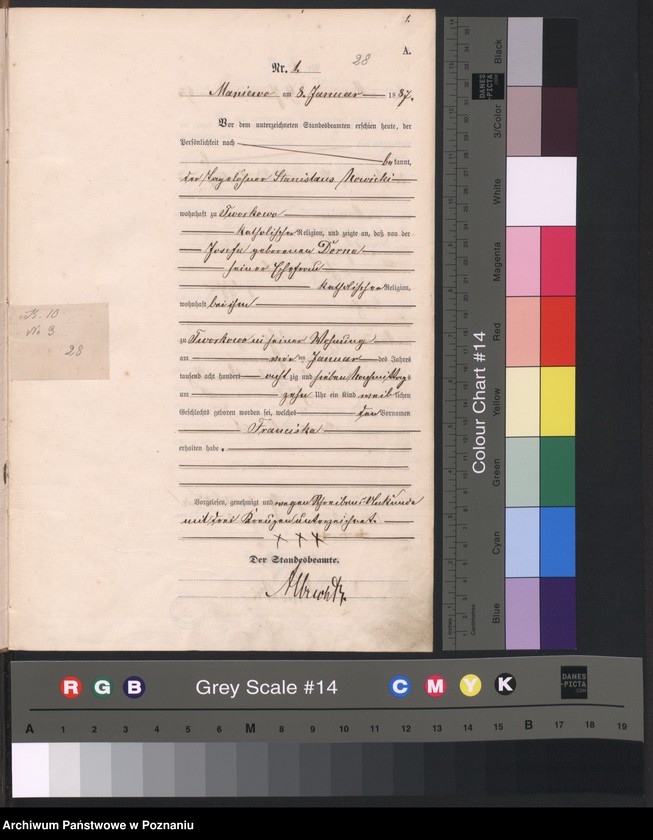 1.
A.
28
Nr. 1.
Maniewo am 3. Januar 1887.
Vor dem unterzeichneten Standesbeamten erschien heute, der
Persönlichkeit nach
bekannt,
der Tagelöhner Stanislaus Nowicki
wohnhaft zu Tworkowo
katholischer Religion, und zeigte an, daß von der
Josefa geborenen Dorna
seiner Ehefrau
katholischer Religion,
wohnhaft bei ihm
zu Tworkowo in seiner Wohnung
am ten Januar des Jahres
tausend acht hundert achtzig und sieben Nachmittags
um zehn Uhr ein Kind weiblichen
Geschlechts geboren worden sei, welches den Vornamen
Franciska
erhalten habe.
Vorgelesen, genehmigt und wegen Schreibens Unkunde
mit drei Kreuzen unterzeichnet.
+ + +
Der Standesbeamte.
Albrecht
No 3
28
Black
3/Color
White
Magenta
Red
Yellow
Green
Cyan
Blue
Colour Chart #14
DANES
-PICTA
.COM
Centimetres
R G B
Grey Scale #14
C M Y K
DANES
-PICTA
.COM
A 1 2 3 4 5 6 M 8 9 10 11 12 13 14 15 B 17 18 19
Archiwum Państwowe w Poznaniu